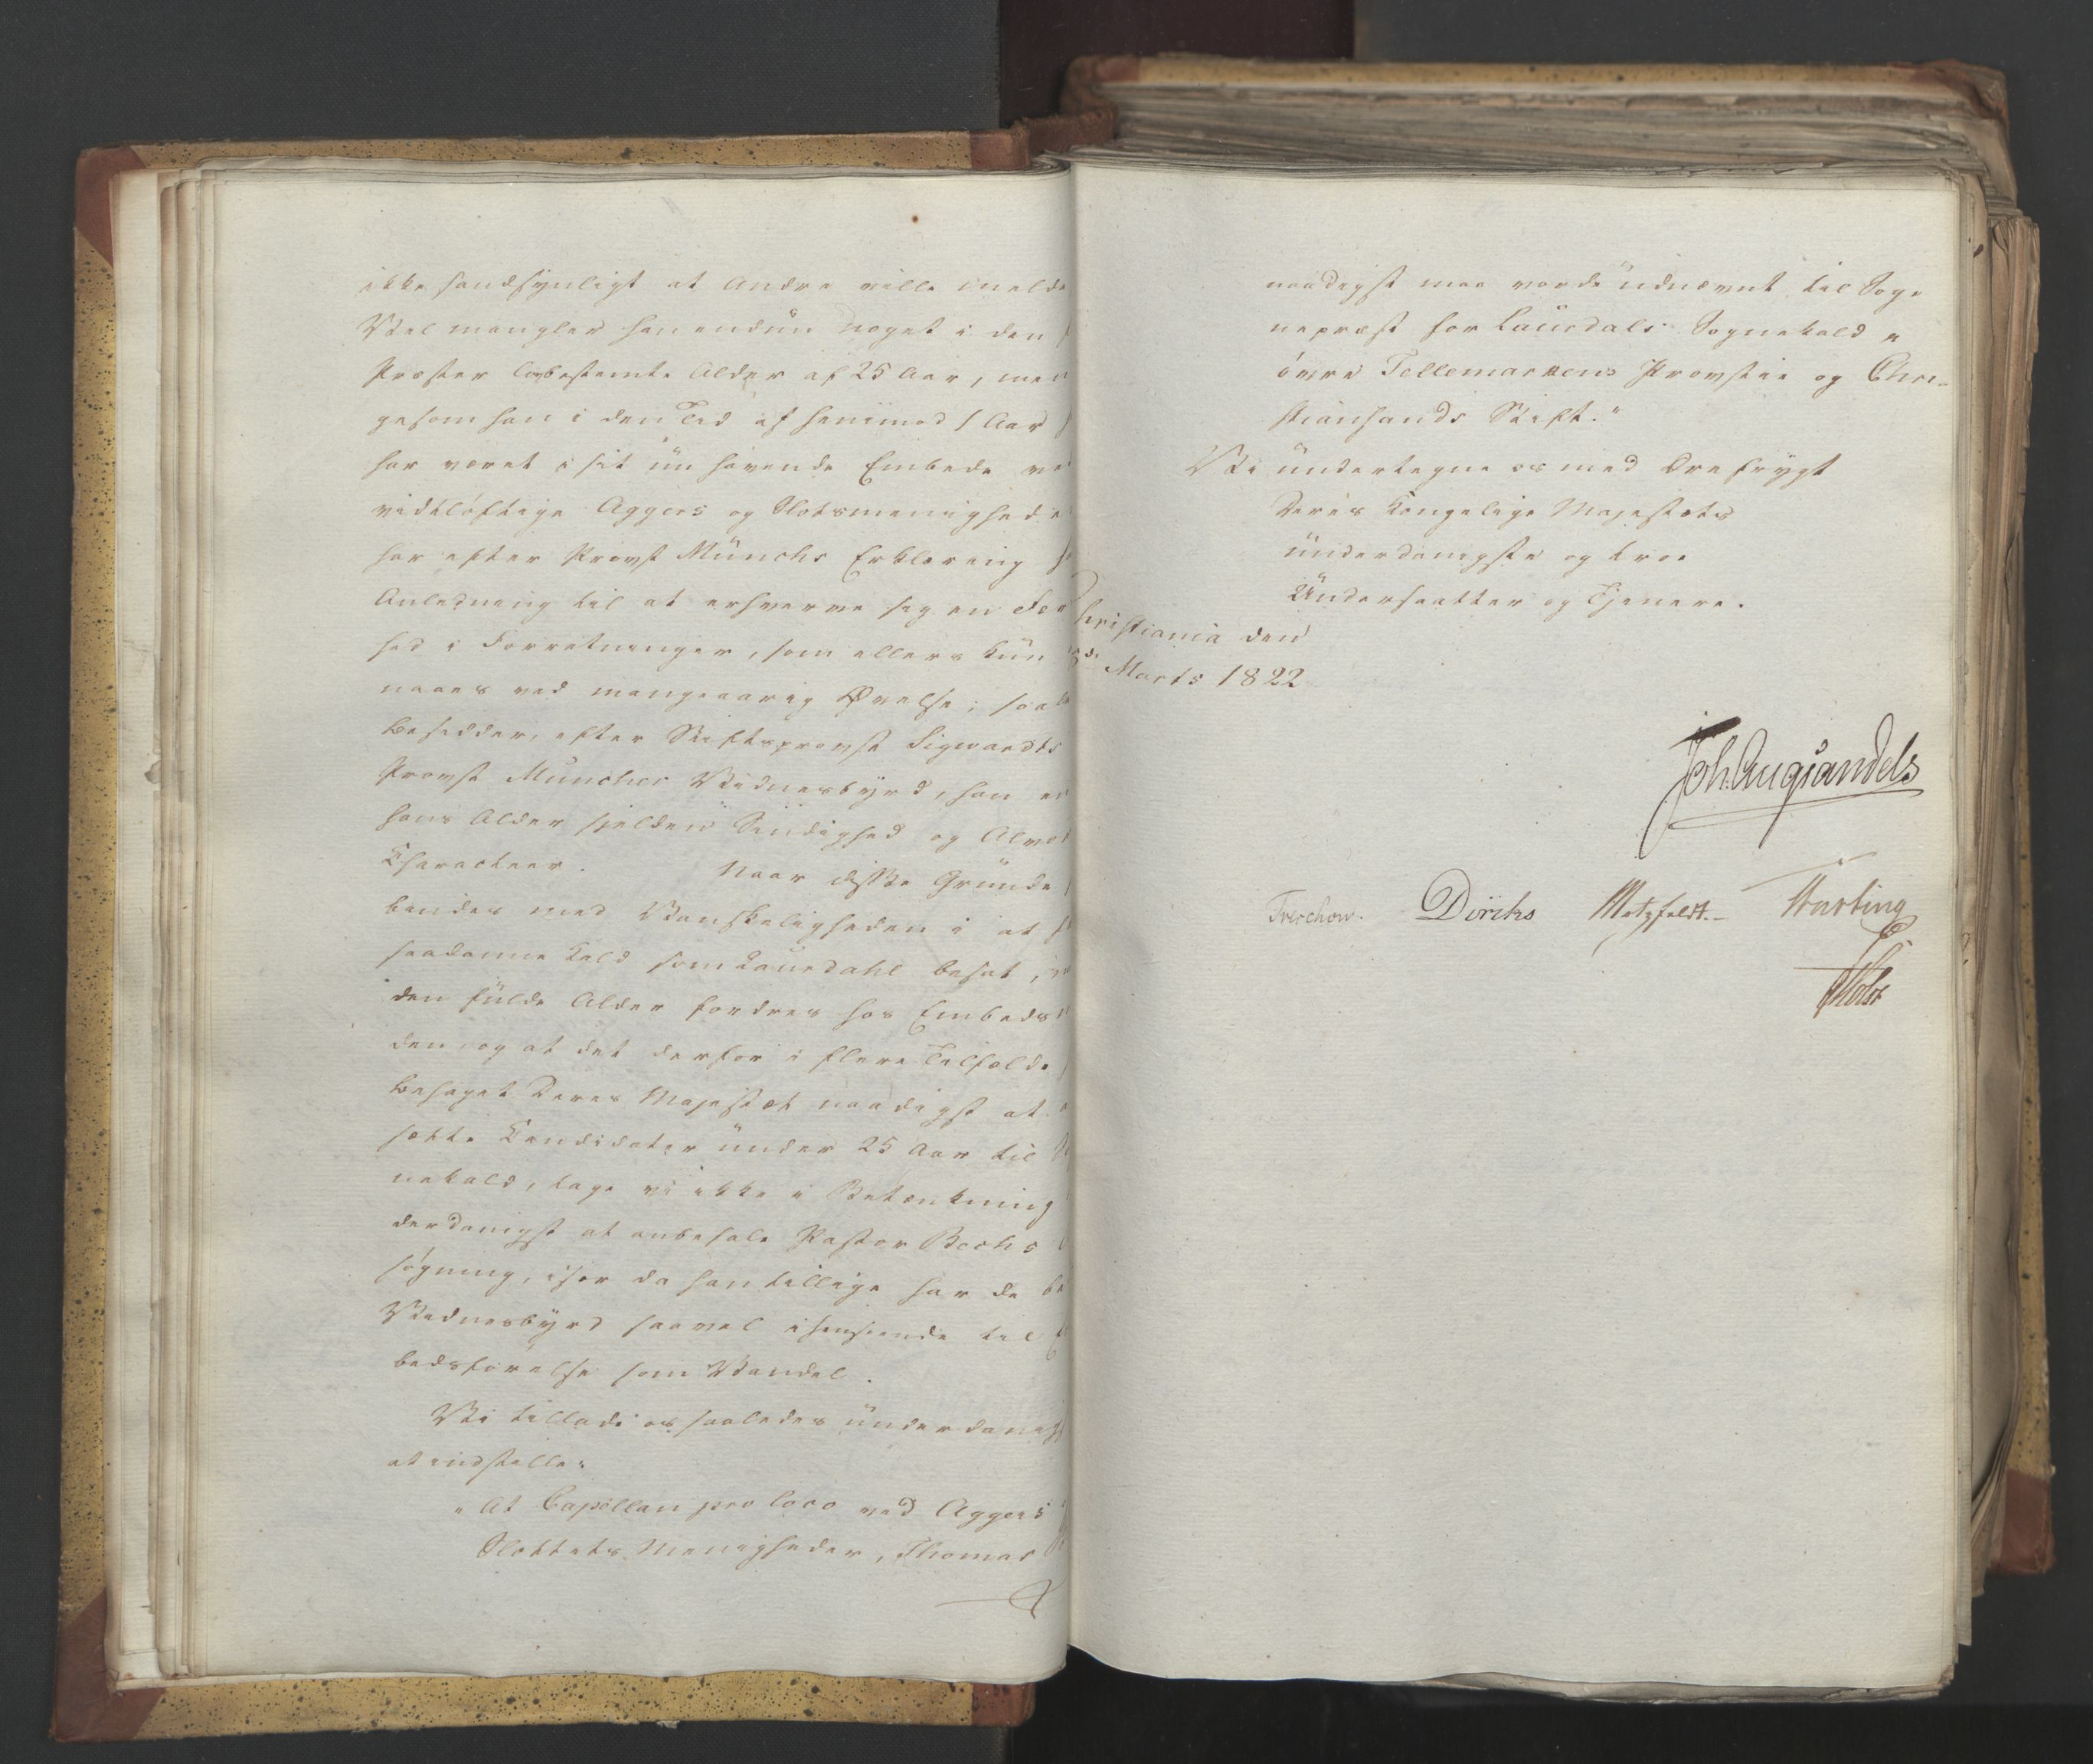 ikke sandsynligt at Andre ville melde
Vel mangler han endnu noget i den
Præster lovbestemte Alder af 25 Aar, men
gesom han i den Tid af henimod 1 Aar
har været i sit nu havende Embede ved
vidtløftige Aggers og Slotsmenighed
har efter Provst Münchs Erklæring
Anledning til at erhverve sig en Fær
hed i Forretninger, som ellers kun
naaes ved mangeaarig Øvelse; saa
besidder, efter Stiftsprovst Sigwardts
Provst Münchs Vidnesbyrd, han en
hans Alder sjelden Stadighed og Alvor
Characteer. Naar disse Grunde
bindes med Vanskeligheden i at
saadanne Kald som Laurdahl besat,
den fulde Alder fordres hos Embeds
den og at det derfor i flere Tilfælde
behaget Deres Majestæt naadigst at
sætte Candidater under 25 Aar til
nekald, tage vi ikke i Betænkning
derdanigst at anbefale Pastor Bechs
søgning, især da han tillige har de
Vidnesbyrd saavel i henseende til
bedsførelse som Vandel.
Vi tillade os saaledes underdanigst
at indstille:
"At Capellan pro loco ved Aggers
Slottets Menigheder, Thomas
naadigst maa vorde udnævnt til Sog-
nepræst for Laurdals Sognekald i
øvre Tellemarkens Provstie og Chri-
stiansands Stift."
Vi undertegne os med Ærefrygt
Deres Kongelige Majestæts
underdanigste og troe
Undersaatter og Tjenere.
Christiania den
Marts 1822
Joh. Aug. Sandels
Treschow. Diriks Motzfeldt. Krefting
Holst